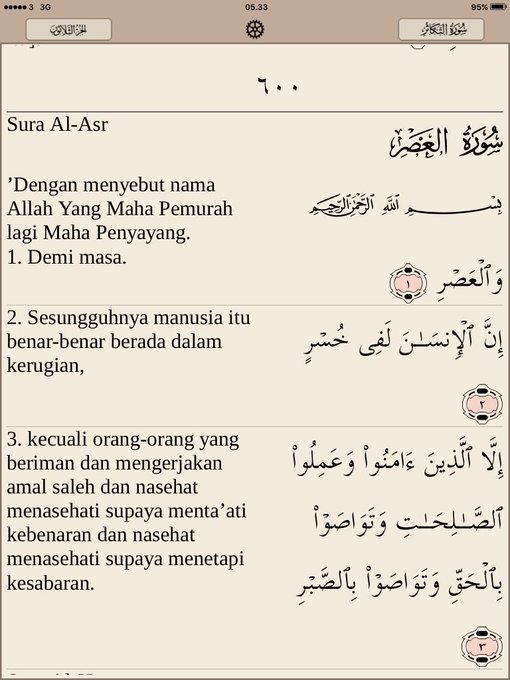 3 3G
05.33
95%
الجزء الثلاثون
سُورَةُ التَّكَاثُرِ
٦٠٠
Sura Al-Asr
سُورَةُ العَصْرِ
’Dengan menyebut nama
Allah Yang Maha Pemurah
lagi Maha Penyayang.
بِسْمِ اللَّهِ الرَّحْمَٰنِ الرَّحِيمِ
1. Demi masa.
وَٱلْعَصْرِ ١
2. Sesungguhnya manusia itu
benar-benar berada dalam
kerugian,
إِنَّ ٱلْإِنسَـٰنَ لَفِى خُسْرٍ
٢
3. kecuali orang-orang yang
beriman dan mengerjakan
amal saleh dan nasehat
menasehati supaya menta’ati
kebenaran dan nasehat
menasehati supaya menetapi
kesabaran.
إِلَّا ٱلَّذِينَ ءَامَنُوا۟ وَعَمِلُوا۟
ٱلصَّـٰلِحَـٰتِ وَتَوَاصَوْا۟
بِٱلْحَقِّ وَتَوَاصَوْا۟ بِٱلصَّبْرِ
٣